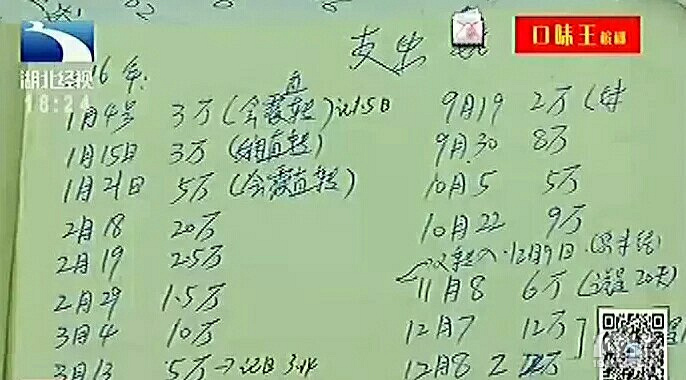 湖北经视
18:24
口味王槟榔
支出
6年:
1月4号 3万(会霞转)记1.5日
直
1月15日 3万(直转)
1月21日 5万(会霞直转)
2月18 20万
2月19 2.5万
2月29 1.5万
3月4 10万
3月13 5万→记日3.14
9月19 2万(
9月30 8万
10月5 5万
10月22 9万
12月9日
11月8 6万(20天)
12月7 12万
12月8 2万